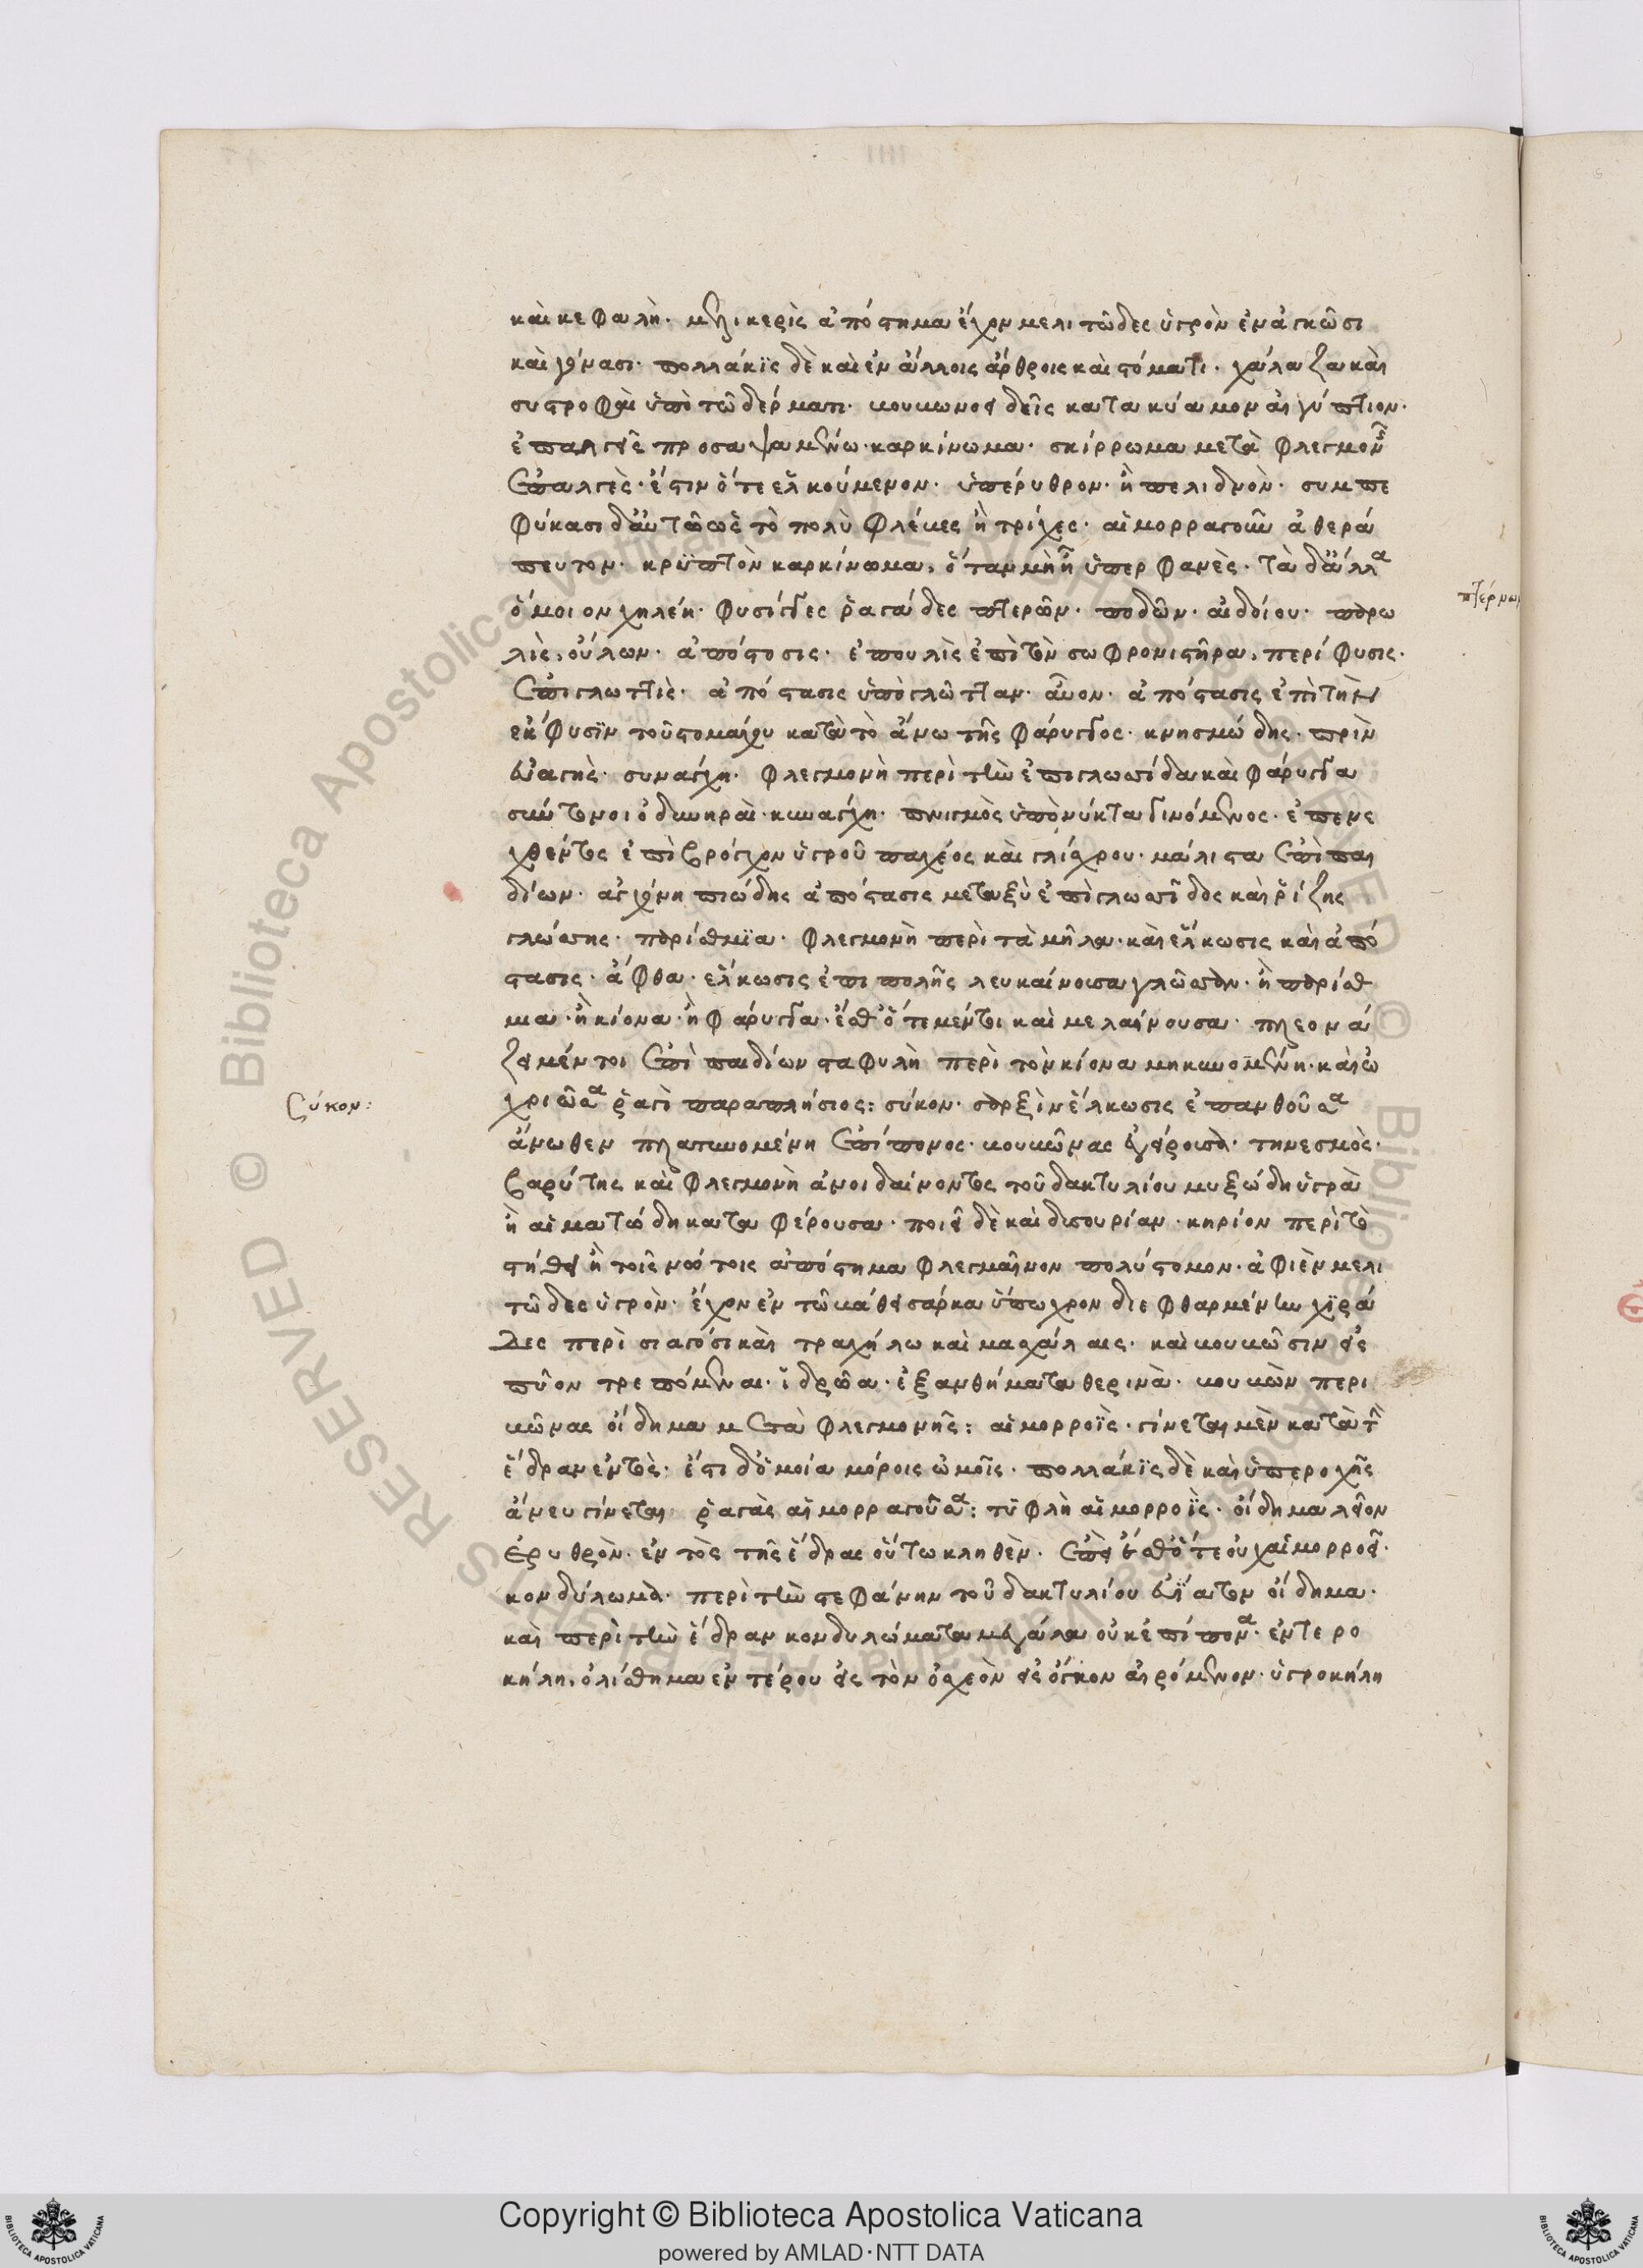 καὶ κεφαλῆ· μελικερὶς ἀπόστημα ἔχον μελιτῶδες ὑγρὸν ἐν ἀγκῶσι
καὶ γόνασι· πολλάκϊς δὲ καὶ ἐν ἄλλοις ἄρθροις καὶ στόματι· χάλαζα καὶ
συστροφαὶ ὑπὸ τῶ δέρματι· κατα κύαμον αἰγύπτιον·
προσαψαμένω· καρκίνωμα· σκίρρωμα μετὰ φλεγμονῆς
ἐπαλγὲς· ἔστιν ὅτε ἑλκούμενον· ὑπέρυθρον· ἢ πελιδνὸν· συμπε
φύκασι δ' αὐτῶ ὡς τὸ πολὺ φλέβες ἢ τρίχες· αἱμορραγοῦν ἀθερά
πευτον· κρϋπτὸν καρκίνωμα, ὅταν μὴ ἦ ὑπερφανὲς· τὰ δ' ἄλλα
ὅμοιον χηλέη· ῥαγάδες πτερῶν· ποδῶν· αἰδοίου· παρω
λὶς, οὔλων· ἀπόστασις· ἐπουλὶς ἐπὶ τὸν σωφρονιστῆρα, περίφυσις·
ἐπιγλωττὶς· ἀπόστασις ὑπὸ γλῶτταν· ἀπόστασις ἐπὶ τὴν
ἔκφυσϊν τοῦ στομάχου κατὰ τὸ ἄνω τῆς φάρυγγος· κνησμώδης· πρὶν
ἐαγῆς· συνάγχη· φλεγμονὴ περὶ τὴν ἐπιγλωττίδα καὶ φάρυγγα
σύντονοι ὀδυνηραὶ· κυνάγχη· πνιγμὸς ὑπὸ νύκτα γινόμενος· ἐπενε
χθέντος ἐπὶ βρόγχον ὑγροῦ παχέος καὶ γλίσχρου· μάλιστα ἐπὶ παι
δίων· ἀγχόνη πυώδης ἀπόστασις μεταξὺ ἐπιγλωττῖδος καὶ ῥίζης
γλώττης· παρίσθμϊα· φλεγμονὴ περὶ τὰ μῆλα· καὶ ἕλκωσις καὶ ἀπό
στασις· ἄφθα· ἕλκωσις ἐπιπολῆς λευκαίνουσα γλῶτταν· ἢ παρίσθ
μια· ἢ κίονα· ἢ φάρυγγα· ἔσθ' ὅτε μέντοι καὶ μελαίνουσα· πλεονά
ζει μέντοι ἐπὶ παιδίων σταφυλὴ περὶ τὸν κίονα μηκυνομένη· καὶ ὠ
χριῶσα ῥαγὶ παραπλήσιος: σύκον· σαρξὶν ἕλκωσις ἐπανθοῦσα
ἄνωθεν πλατυνομένη ἐπίπονος· βουβῶνας ἐγείρουσα· τηνεσμὸς·
βαρύτης καὶ φλεγμονὴ ἀνοιδαίνοντος τοῦ δακτυλίου μυξώδη ὑγρὰ
ἢ αἱματώδη καταφέρουσα· ποιεῖ δὲ καὶ δυσουρίαν· κηρίον περὶ τὸ
στήθει ἢ τοῖς νώτοις ἀπόστημα φλεγμαῖνον πολύστομον· ἀφιὲν μελι
τῶδες ὑγρὸν· ἔχον ἐν τῶ βάθει σάρκα ὕπωχρον διεφθαρμένην χϊρά
δες περὶ σιαγόσι καὶ τραχήλω καὶ μασχάλαις· καὶ βουβῶσιν εἰς
πῦον τρεπόμεναι· ἱδρῶα· ἐξανθήματα θερινὰ· βουβὼν περι
βῶνας οἴδημα μετὰ φλεγμονῆς: αἱμορροϊς· γίνεται μὲν κατὰ τὴν
ἕδραν ἐντὸς· ἔστι δ' ὁμοία μόροις ὠμοῖς· πολλάκϊς δὲ καὶ ὑπεροχῆς
ἄνευ γίνεται ῥαγὰς αἱμορραγοῦσα: τϋφλὴ αἱμορροϊς· οἴδημα λεῖον
ἐρυθρὸν· ἐντὸς τῆς ἕδρας οὕτω κληθὲν· ἐπεὶ ἔσθ' ὅτε οὐχ αἱμορροεῖ·
κονδύλωμα· περὶ τὴν στεφάνην τοῦ δακτυλίου οἴδημα·
καὶ περὶ τὴν ἕδραν κονδυλώματα μεγάλα οὐκ ἐπίπονα· ἐντερο
κήλη, ὀλίσθημα ἐντέρου εἰς τὸν ὀσχεὸν εἰς ὄγκον αἰρόμενον· ὑγροκήλη
πτέρνων
Σύκον:
RESERVED © Biblioteca Apostolica Vaticana
Copyright © Biblioteca Apostolica Vaticana
powered by AMLAD·NTT DATA
BIBLIOTECA APOSTOLICA VATICANA
BIBLIOTECA APOSTOLICA VATICANA